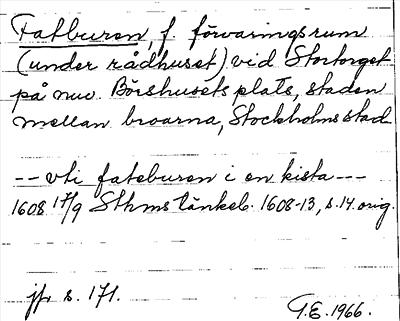 Fatburen, f. förvaringsrum
(under rådhuset) vid Stortorget
på nuv. Börshusets plats, staden
mellan broarna, Stockholms stad
-- vti fateburen i en kista ---
1608 17/9 Sthms tänkeb. 1608-13, s. 14. orig.
jfr s. 171.
G.E. 1966.